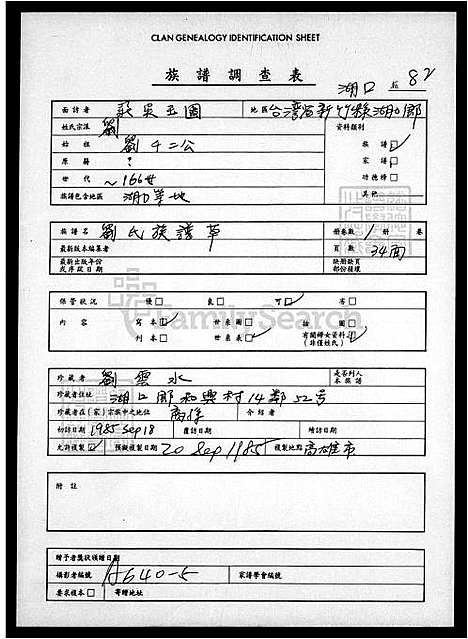 CLAN GENEALOGY IDENTIFICATION SHEET
族譜調查表
湖口 82
面訪者 地區 台灣省新竹縣湖口鄉
姓氏宗派 劉 資料類別
始祖 劉千二公 族譜□
原籍 ? 家譜□
世代 ~166世 功德榜□
族譜包含地區 湖口等地 其他
族譜名 劉氏族譜草 册卷數 1 册 卷
最新版本編纂者 頁數 34面
最新出版年份或序跋日期 缺册缺頁部份種壞
保管狀況 優□ 良□ 可□ 劣□
內容 寫本□ 世系圖□ 插圖□
刊本□ 世系表□ 有關婦女資料(非僅姓氏)
FamilySearch
珍藏者 劉雲水 是否列入本族譜
珍藏者住址 湖口鄉和興村14鄰52号
珍藏者在(家)宗族中之地位 裔孫 介紹者
初訪日期 1985 Sep 18 覆訪日期 續訪日期
允許複製□ 預擬複製日期 20 Sep 1985 複製地點 高雄市
附註
贈予者獎狀頒贈日期
攝影者編號 A640-5 家譜學會編號
要求複本□ 寄贈地址